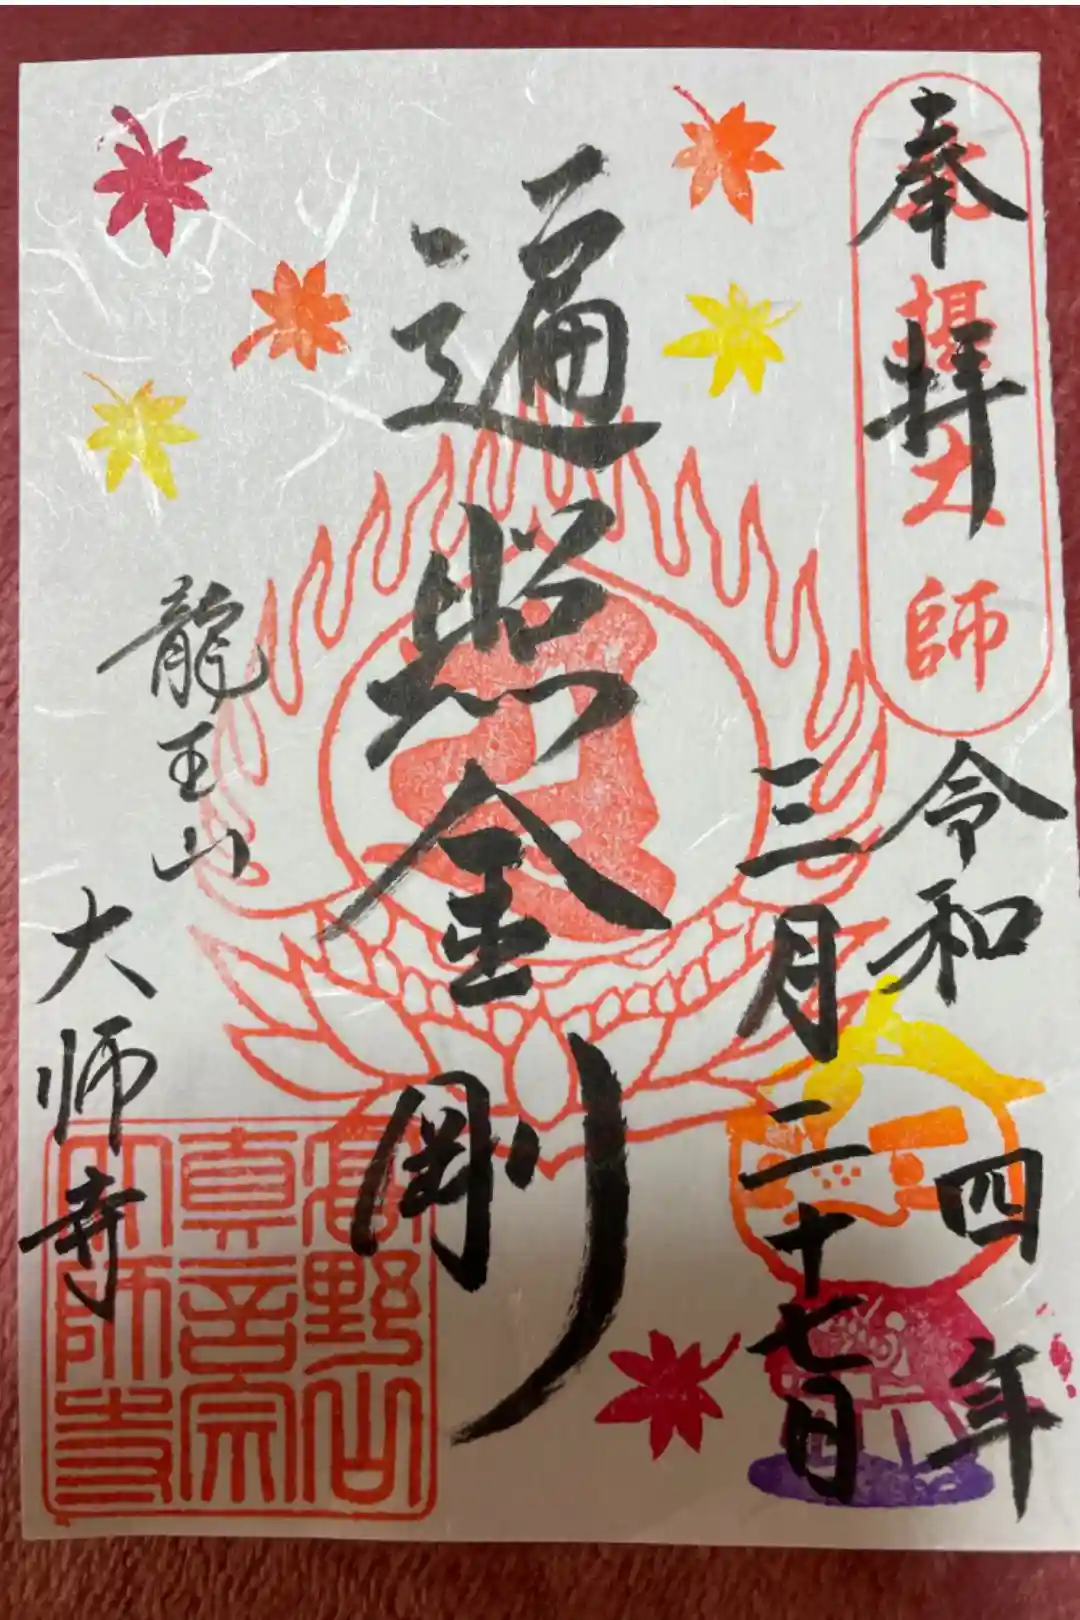 奉拝
北摂大師
令和四年
三月二十七日
遍照金剛
龍王山
大师寺
高野山
真言宗
大師寺